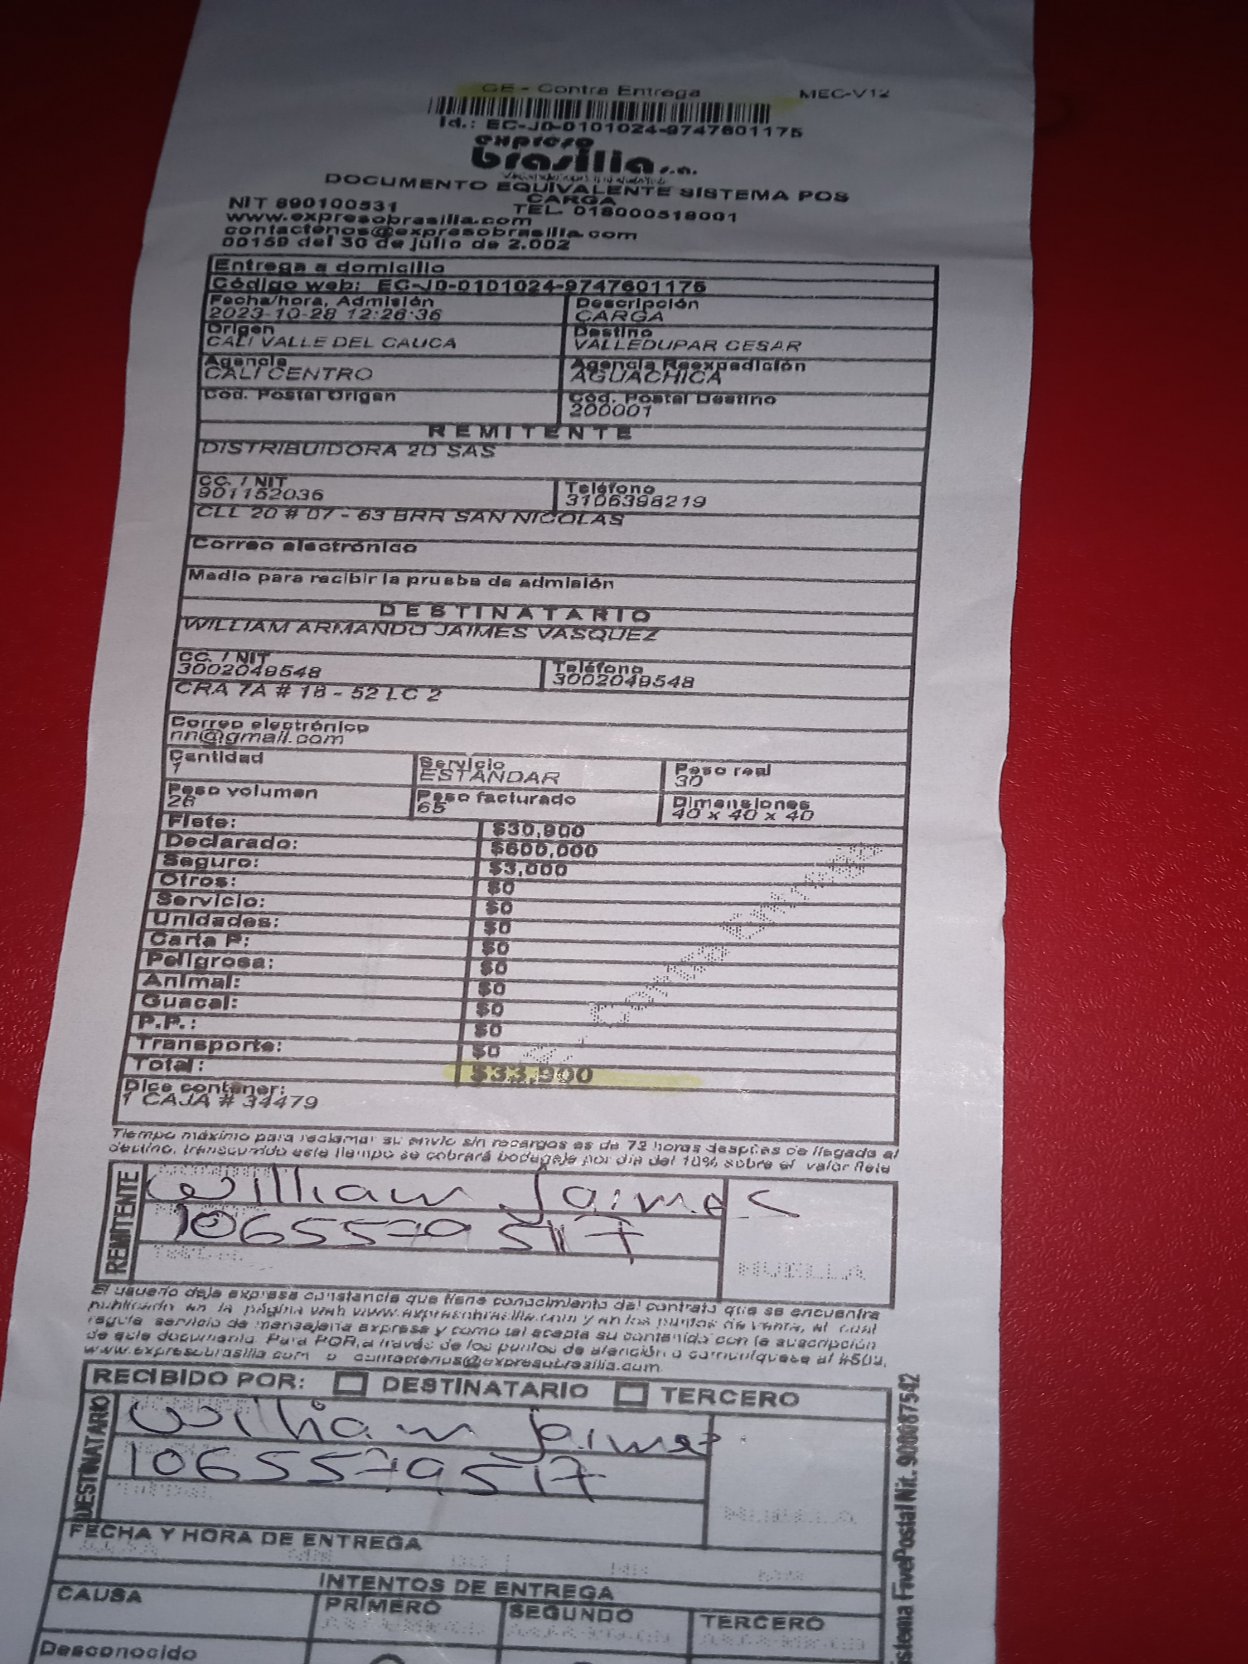 CE - Contra Entrega MEC-V12
Id.: EC-J0-0101024-9747601175
expreso
brasilia s.a.
DOCUMENTO EQUIVALENTE SISTEMA POS
CARGA
NIT 890100531 TEL. 018000518001
www.expresobrasilia.com
contactenos@expresobrasilia.com
00159 del 30 de julio de 2.002
Entrega a domicilio
Código web: EC-J0-0101024-9747601175
Fecha/hora, Admisión Descripción
2023-10-28 12:26:36 CARGA
Origen Destino
CALI VALLE DEL CAUCA VALLEDUPAR CESAR
Agencia Agencia Reexpedición
CALI CENTRO AGUACHICA
Cód. Postal Origen Cód. Postal Destino
200001
REMITENTE
DISTRIBUIDORA 2D SAS
CC. / NIT Teléfono
901152036 3106398219
CLL 20 # 07 - 63 BRR SAN NICOLAS
Correo electrónico
Medio para recibir la prueba de admisión
DESTINATARIO
WILLIAM ARMANDO JAIMES VASQUEZ
CC. / NIT Teléfono
3002049548 3002049548
CRA 7A # 18 - 52 LC 2
Correo electrónico
nn@gmail.com
Cantidad Servicio Peso real
1 ESTANDAR 30
Peso volumen Peso facturado Dimensiones
26 65 40 x 40 x 40
Flete: $30,900
Declarado: $600,000
Seguro: $3,000
Otros: $0
Servicio: $0
Unidades: $0
Carta P: $0
Peligrosa: $0
Animal: $0
Guacal: $0
P.P.: $0
Transporte: $0
Total: $33,900
Dice contener:
1 CAJA # 34479
Tiempo máximo para reclamar su envío sin recargos es de 72 horas después de llegada al
destino, transcurrido este tiempo se cobrará bodegaje por día del 10% sobre el valor flete
REMITENTE
William Jaimes
1065579517
HUELLA
El usuario deja expresa constancia que tiene conocimiento del contrato que se encuentra
publicado en la página web www.expresobrasilia.com y en los puntos de venta, el cual
regula servicio de mensajería expresa y como tal acepta su contenido con la suscripción
de este documento. Para PQR, a través de los puntos de atención o comuníquese al #502,
www.expresobrasilia.com o contactenos@expresobrasilia.com
RECIBIDO POR: DESTINATARIO TERCERO
DESTINATARIO
William Jaimes
1065579517
HUELLA
FECHA Y HORA DE ENTREGA
INTENTOS DE ENTREGA
CAUSA PRIMERO SEGUNDO TERCERO
Desconocido
istema FivePostal Nit. 900087542